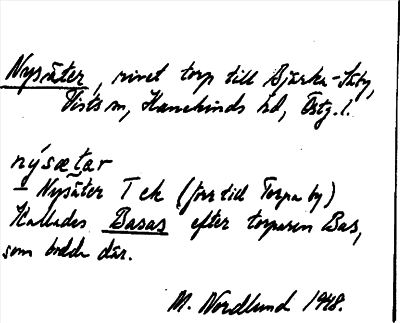 Nysäter, rivet torp till Bjärka-Säby,
Vists sn, Hanekinds hd, Östg. l.
nýsætar
– Nysäter T ek (förr till Torpa by)
Kallades Basas efter torparen Bas,
som bodde där.
M. Nordlund 1948.